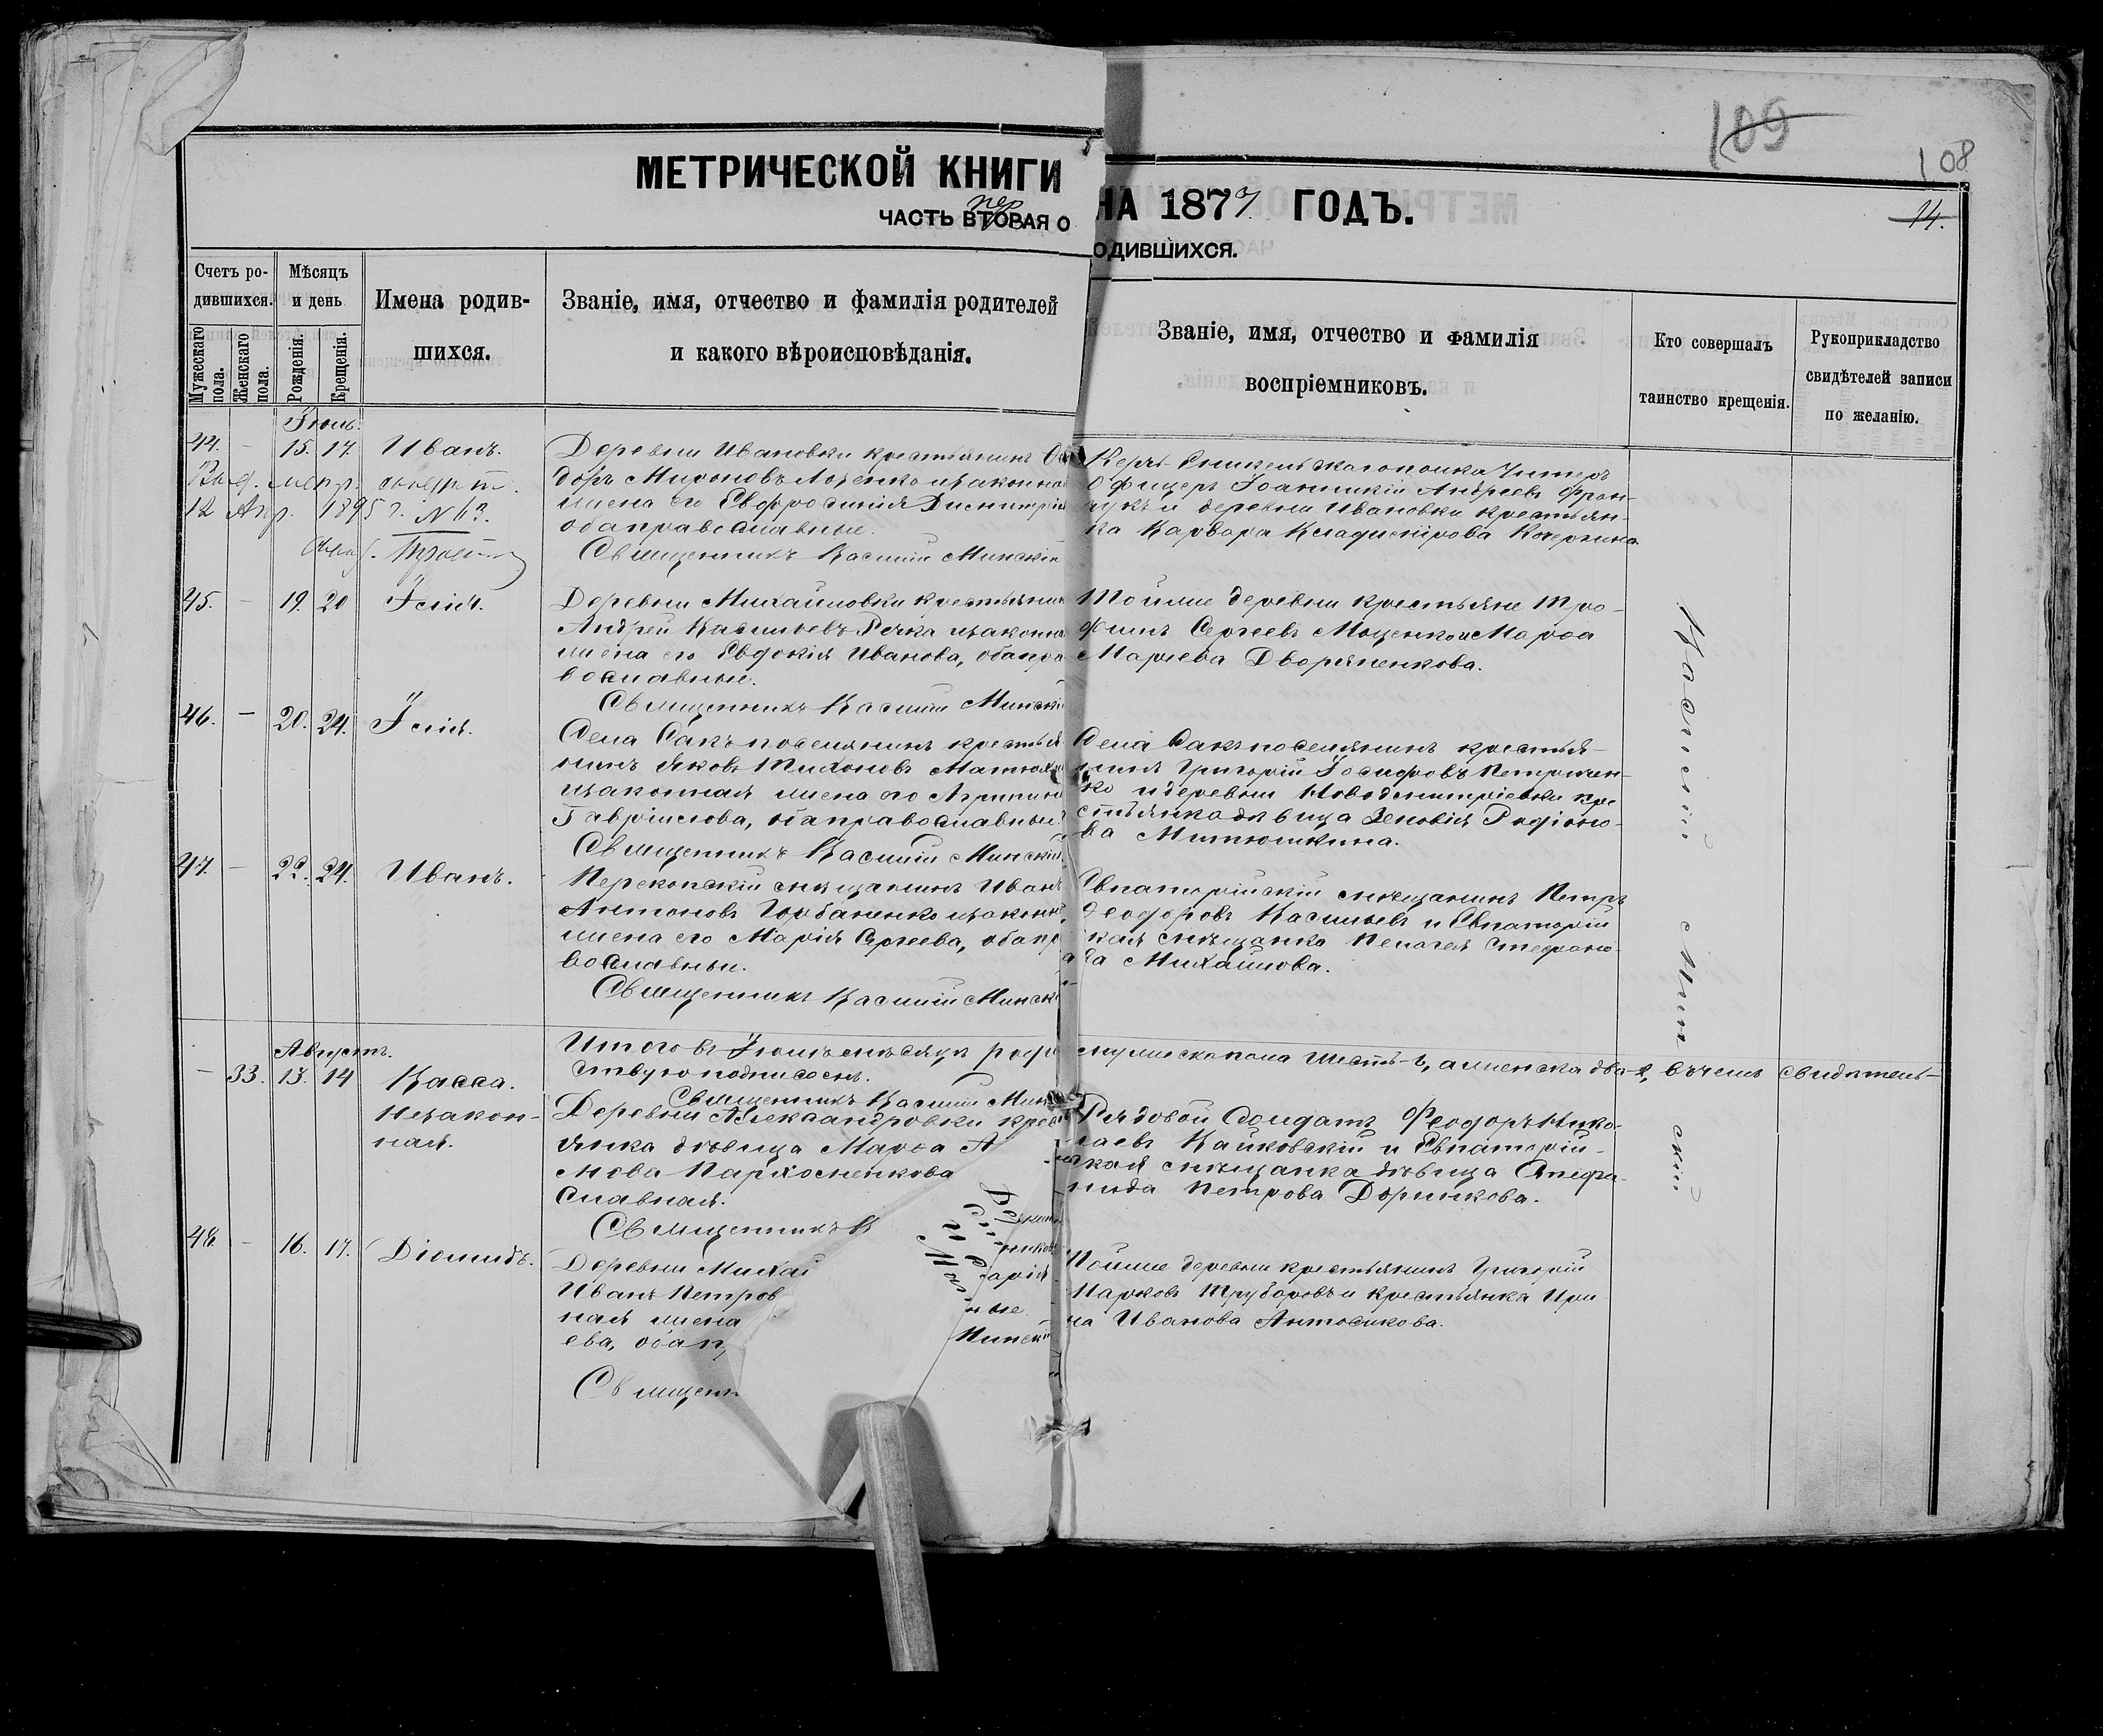 109
108
14.
МЕТРИЧЕСКОЙ КНИГИ
НА 1877 ГОДЪ.
ЧАСТЬ ВТОРАЯ О
пер
ОДИВШИХСЯ.
Счетъ ро-
дившихся.
Мужескаго пола.
Женскаго пола.
Мѣсяцъ
и день
Рожденія.
Крещенія.
Имена родив-
шихся.
Званіе, имя, отчество и фамилія родителей
и какого вѣроисповѣданія.
Званіе, имя, отчество и фамилія
воспріемниковъ.
Кто совершалъ
таинство крещенія.
Рукоприкладство
свидѣтелей записи
по желанію.
Іюль.
44. — 15. 17. Иванъ.
12 Апр. 1895 г. № 63.
Деревни Ивановки крестьянинъ
доръ Мироновъ и законна
жена его Евфросинія Димитрі
оба православные.
Священникъ Василій Минскій
Офицеръ Іоанникій Андреевъ Фран-
чукъ и деревни Ивановки крестьян-
ка Варвара Владимірова Кочергина
45. — 19. 20 Ілія.
Деревни Михайловки крестьянин
Андрей Васильевъ Речка и законна
жена его Евдокія Иванова, оба пра
вославные.
Священникъ Василій Минскі
Той же деревни крестьяне Тро-
фимъ Сергеевъ Моценко и Марѳа
Дворяненкова.
46. — 20. 24. Ілія.
Села Сакъ поселянинъ крестья
нинъ Яковъ Тихоновъ
законная жена его Агрипин
Гавріилова, оба православные
Священникъ Василій Минскій
Села Сакъ поселянинъ крестья-
нинъ Григорій Іосифовъ Петричен-
ко и деревни Новодимитріевки кре
стьянка дѣвица Зеновія Родіоно-
ва Митюшкина.
47. — 22. 24. Иванъ.
Перекопскій мѣщанинъ Иванъ
Антоновъ Горбаненко и законн
жена его Марія Сергеева, оба пр
вославны.
Священникъ Василій Минск
Евпаторійскій мѣщанинъ Петръ
Ѳеодоровъ Васильевъ и Евпаторій
ская мѣщанка Пелагея Стефано-
ва Михайлова.
Итого въ Іюлѣ мѣсяцѣ род
мужеска пола шесть-6, а женска два-2, въ чемъ свидѣтель-
ствую подписомъ.
Священникъ Василій Мин
Августъ.
— 33. 13. 14 Васса.
незакон-
ная.
Деревни Александровки крес
янка дѣвица Марѳа А
мова Пархоменкова
славная.
Священникъ В
Рядовой Солдатъ Феодоръ Нико-
лаевъ Вайковскій и Евпаторій-
ская мѣщанка дѣвица Стефа-
нида Петрова Дорникова.
48. — 16. 17. Діомидъ.
Деревни Михай
Иванъ Петров
ная жена
ева, оба п
Священ
арія
ные.
Минскій
Той же деревни крестьянинъ Григорій
Марковъ Труборовъ и крестьянка Ири
на Иванова Антосикова.
Василій Минскій